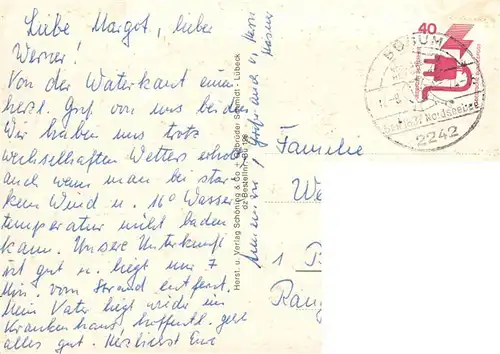 Liebe Margot, lieber
Werner!
Von der Waterkant einen
herzl. Gruß von uns beiden.
Wir haben uns trotz
wechselhaften Wetters erholt
auch wenn man bei star-
kem Wind u. 16° Wasser-
temperatur nicht baden
kann. Unsere Unterkunft
ist gut u. liegt nur 7
Min. vom Strand entfernt.
Mein Vater liegt wieder im
Krankenhaus, hoffentl. geht
alles gut. Herzlichst Eure
Grüße auch v.
Herst. u. Verlag Schöning & Co + Gebrüder Schmidt · Lübeck
Bestellnr. Bü
40
BÜSUM
Nordseebad
2242
Familie
We
1 B
Rang